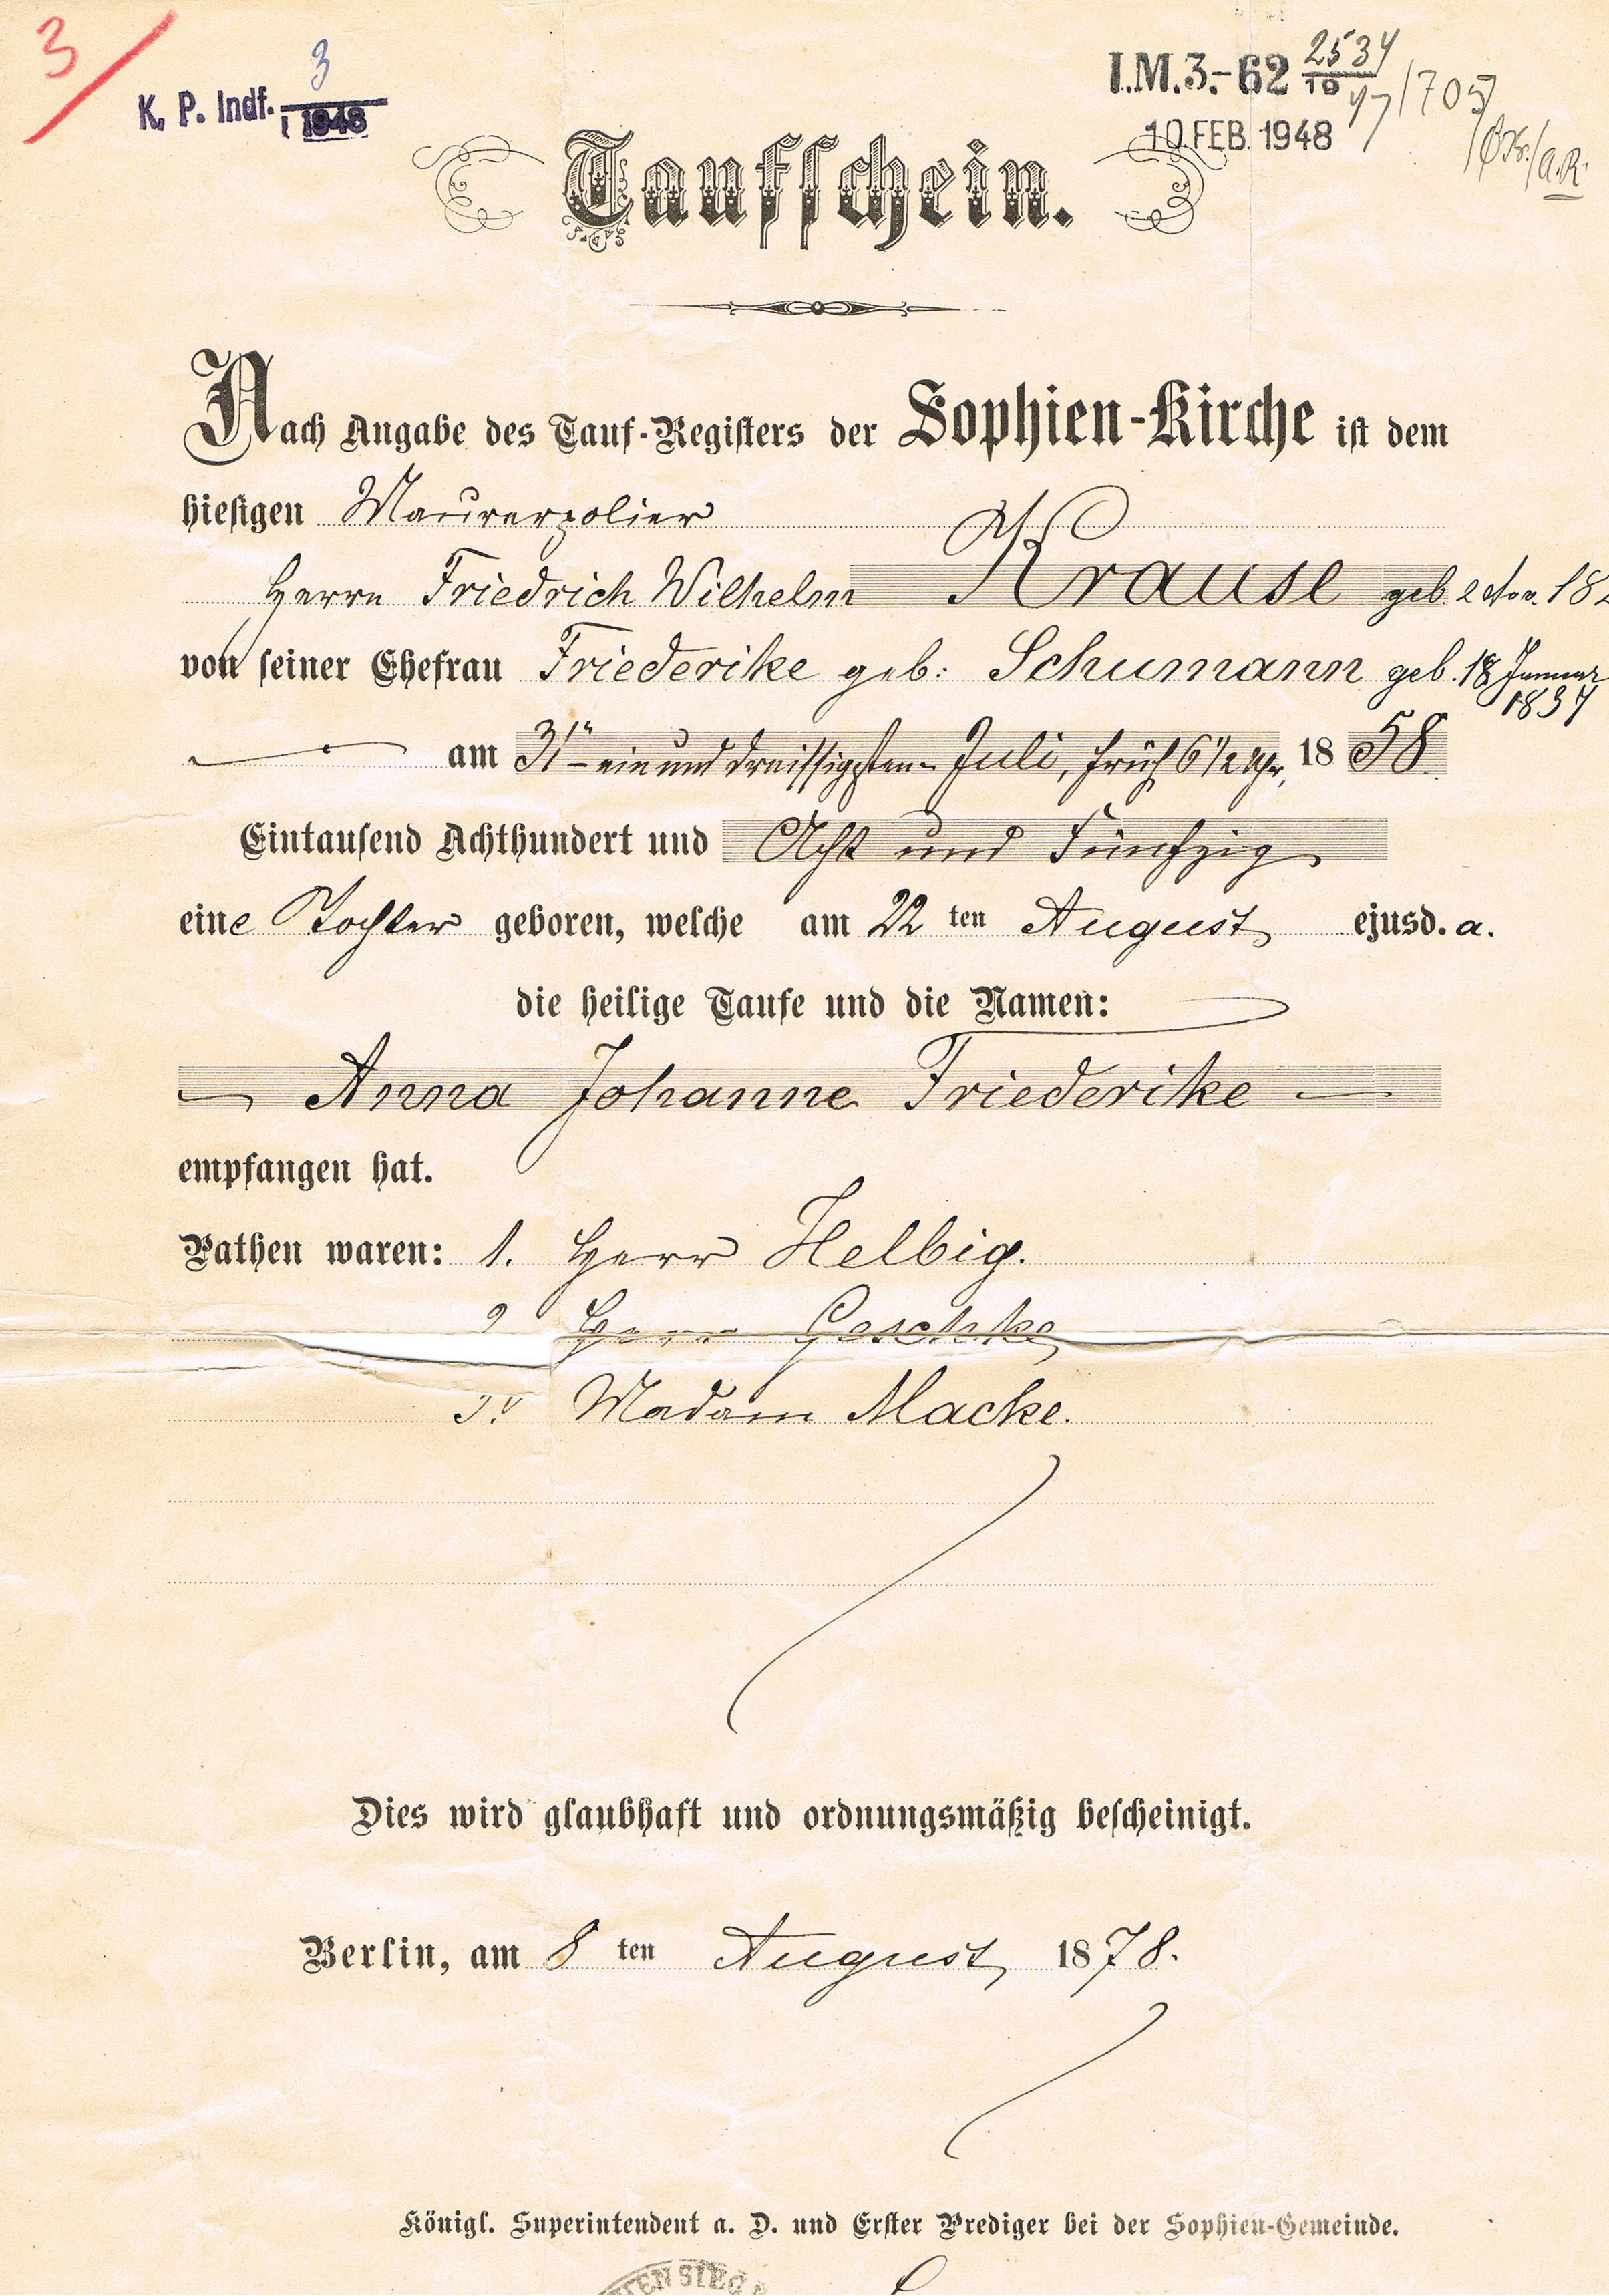 3
K. P. Indf. 3
1948
I.M.3.-62 2534
10
47/705
10. FEB. 1948
Taufschein.
Nach Angabe des Tauf-Registers der Sophien-Kirche ist dem
hiesigen Maurerpolier
Herrn Friedrich Wilhelm Krause geb. 2 Nov. 18
von seiner Ehefrau Friederike geb: Schumann geb. 18 Januar
1837
am 31ten ein und dreissigsten Juli, früh 6 1/2 Uhr, 1858
Eintausend Achthundert und Acht und Fünfzig
eine Tochter geboren, welche am 22 ten August ejusd. a.
die heilige Taufe und die Namen:
Anna Johanne Friederike
empfangen hat.
Pathen waren: 1. Herr Helbig.
2 Herr Geschke
3. Madam Macke.
Dies wird glaubhaft und ordnungsmäßig bescheinigt.
Berlin, am 8 ten August 1878.
Königl. Superintendent a. D. und Erster Prediger bei der Sophien-Gemeinde.